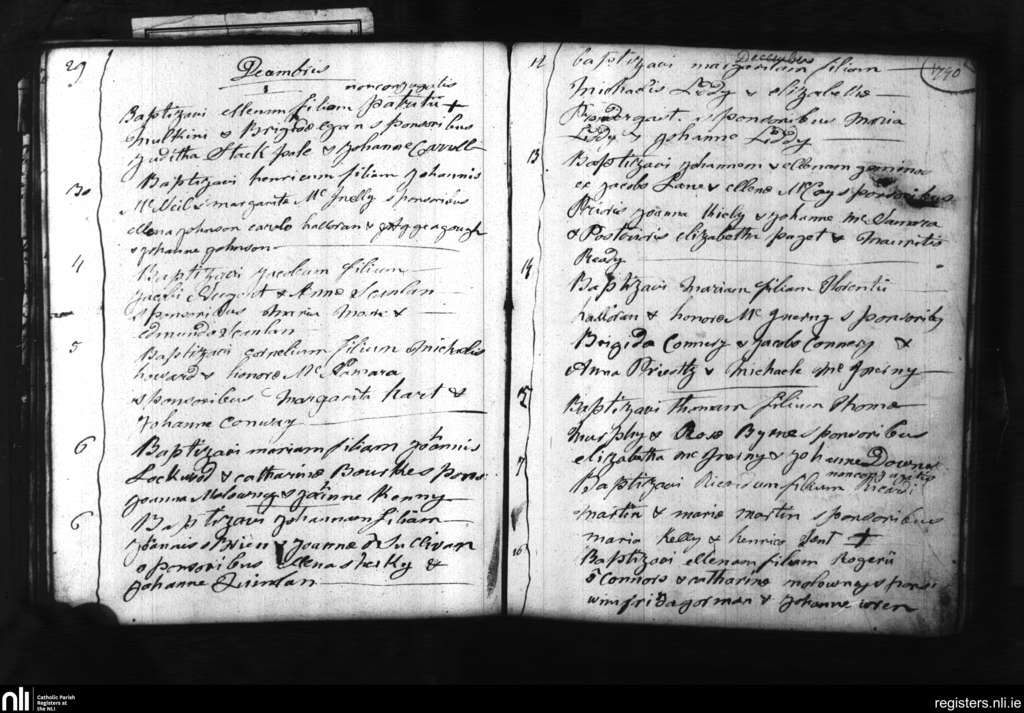 29
Decembris
1
nonconjugatis
Baptizavi ellenam filiam patritii +
mulkins & Brigidæ egan sponsoribus
Juditha Stackpole & Johanne Carroll
30
Baptizavi henricum filium Johannis
McNeil & margarita Mc sponsoribus
ellena johnson carolo halloran &
& Johanne johnson
4
Baptizavi Jacobum filium
Jacobi & Anne Scanlan
sponsoribus maria &
edmundo Scanlan
5
Baptizavi cornelium filium michalis
howard & honoræ McNamara
sponsoribus margarita hart &
Johanne conway
6
Baptizavi mariam filiam Joannis
Lockwood & catharinæ Bourke spons
Joanna Molowney & Joanne Kenny
6
Baptizavi Johannem filium
& Joannæ o Sullivan
sponsoribus &
Johanne Quinlan
1790
12
December
baptizavi margaritam filiam
michalis Liddy & elizabethæ
Prendergast. sponsoribus maria
Liddy & Johanne Liddy
13
Baptizavi Johannem & ellenam gemina
ex Jacobo Lane & ellena McCoy sponsoribus
Prioris Joanna & Johanne mc
& Posterioris elizabetha paget & mauritio
Ready
14
Baptizavi Mariam filiam florentii
halloran & honoræ Mc sponsoribus
Brigida Connery & Jacobo Connery &
Anna & michaele mc
15
Baptizavi thomam filium thomæ
Murphy & Rose Byrne sponsoribus
elizabetha mc & Johanne Downes
nonconjugatis
Baptizavi Ricardum filium Ricardi
martin & mariæ martin sponsoribus
maria Kelly & henrico Lent +
16
Baptizavi ellenam filiam Rogerii
o Connors & catharinæ molowney spons
winifrida gorman & Johanne wren
nli
Catholic Parish
Registers at
the NLI
registers.nli.ie